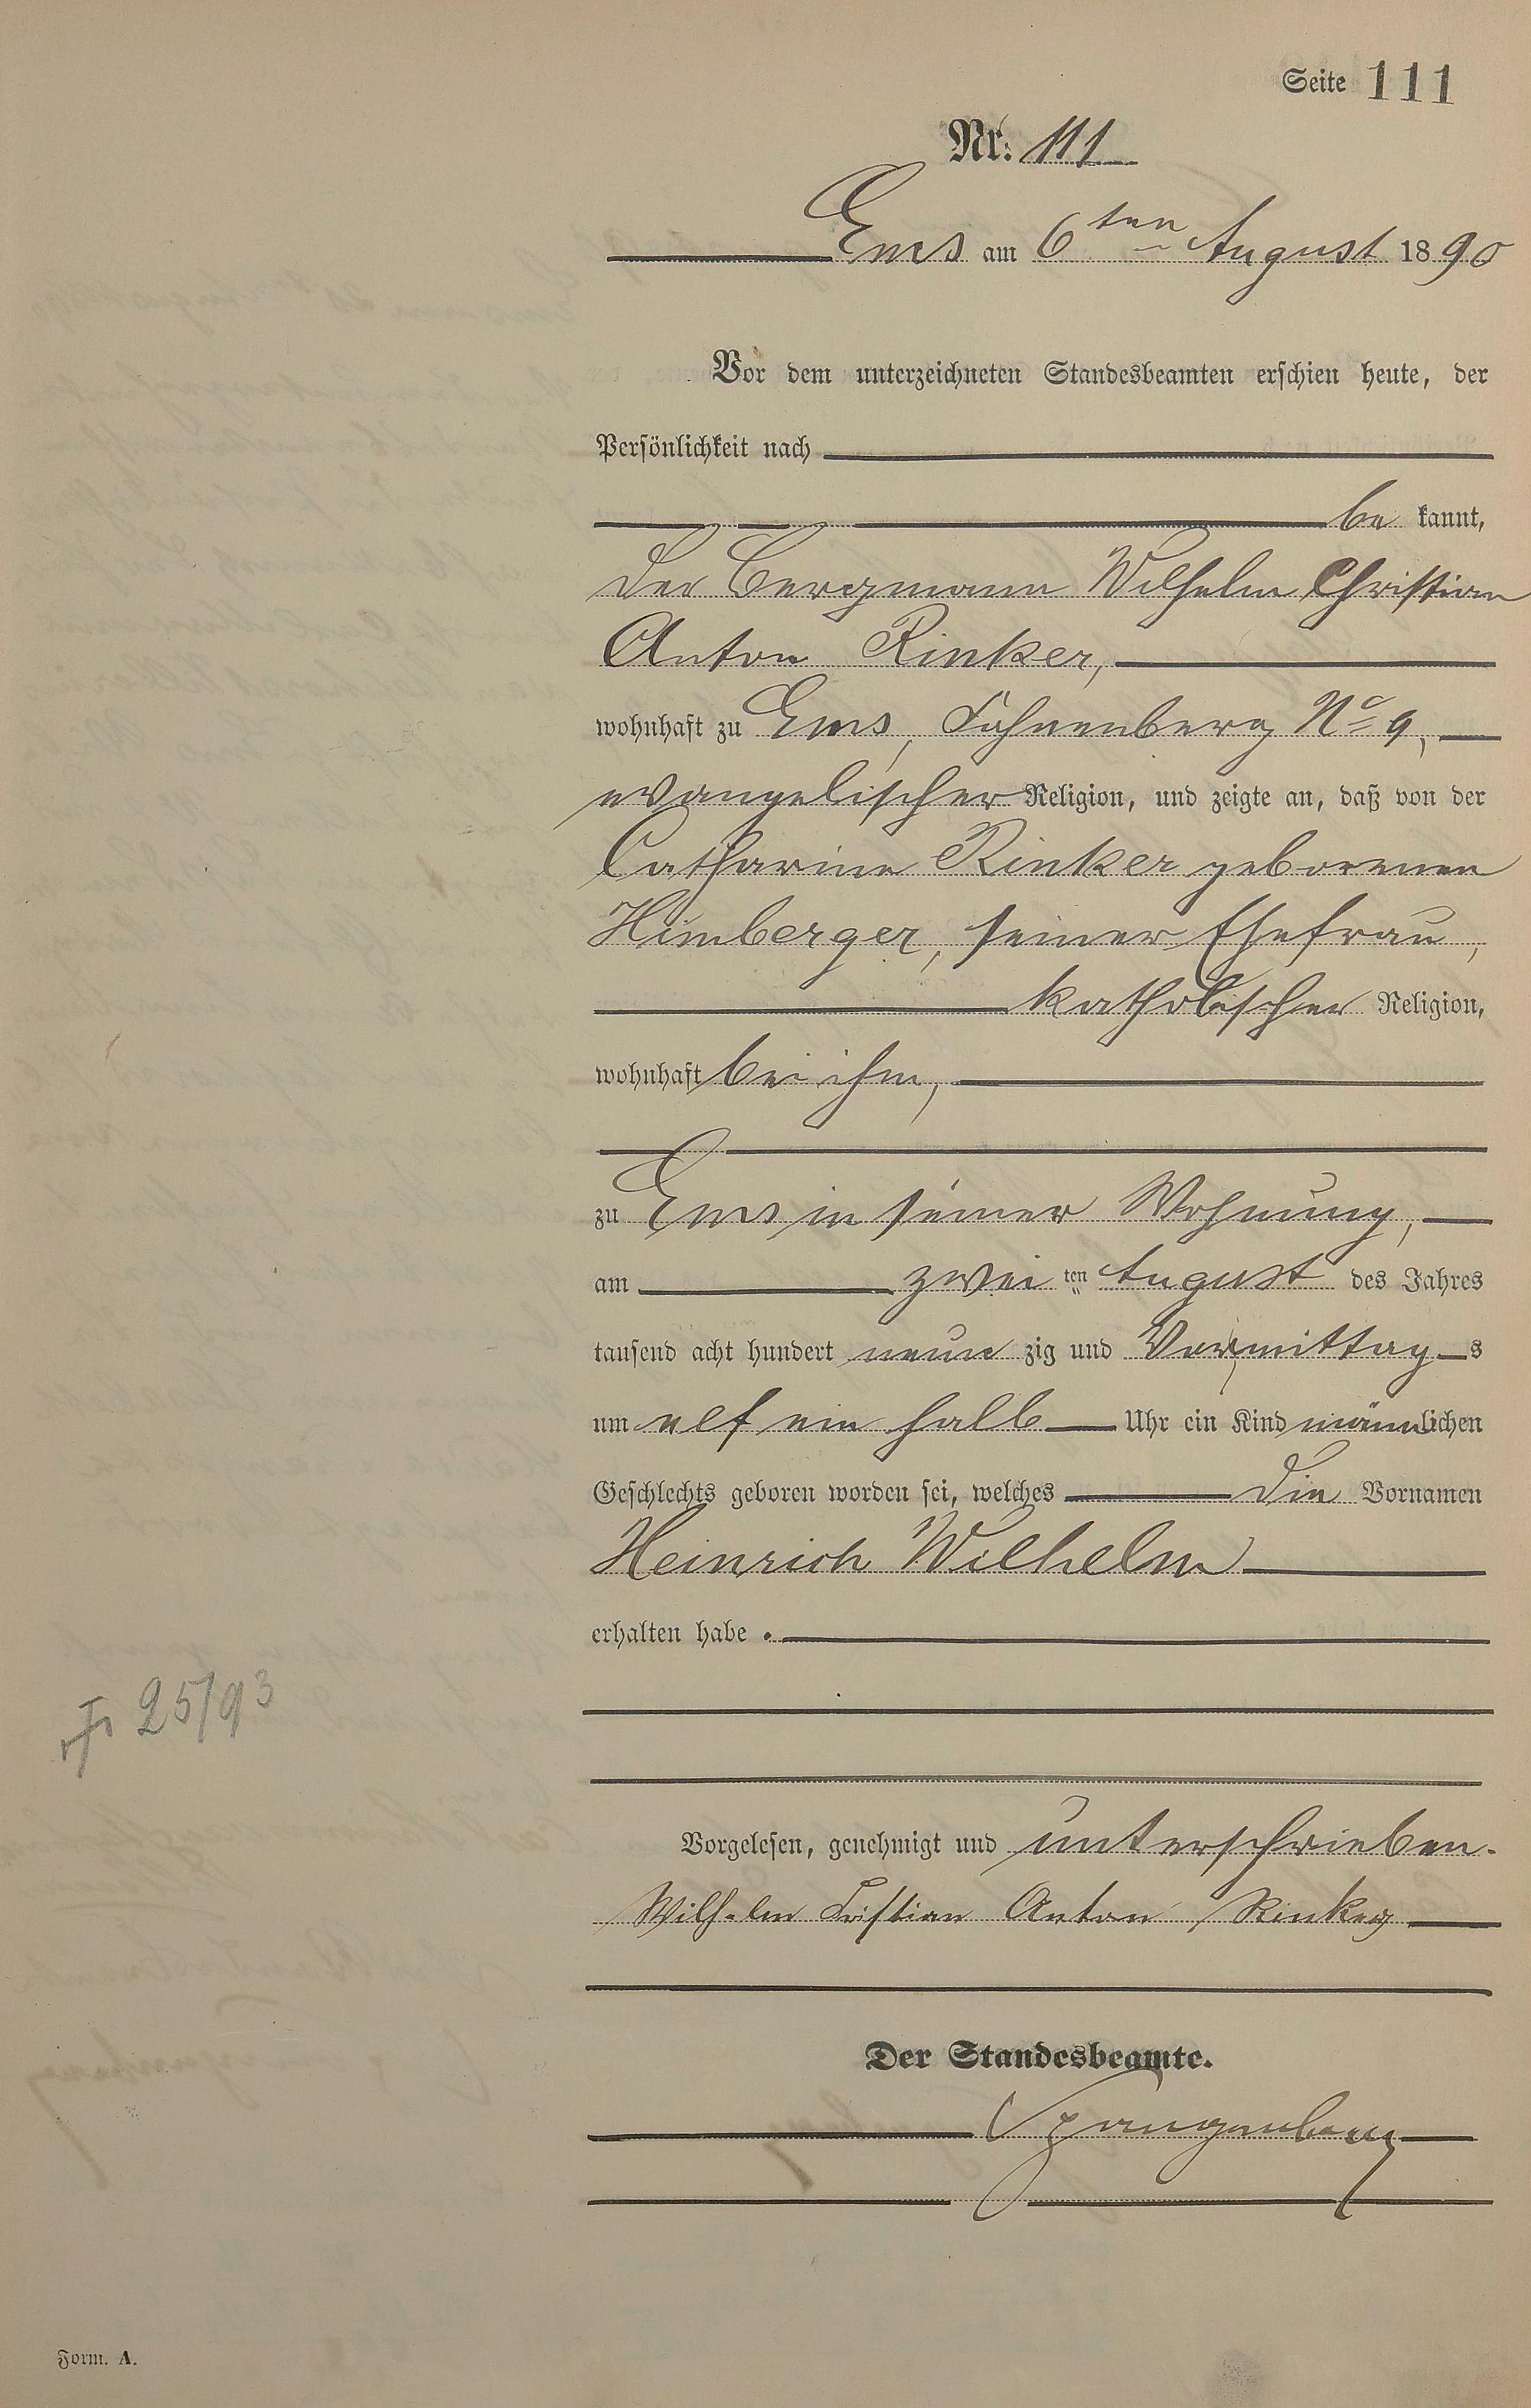 Seite 111
Nr. 111
Ems am 6ten August 1890
Vor dem unterzeichneten Standesbeamten erschien heute, der
Persönlichkeit nach
be kannt,
der Bergmann Wilhelm Christian
Anton Rinker,
wohnhaft zu Ems, No 9,
evangelischer Religion, und zeigte an, daß von der
Catharine Rinker geborenen
Himberger, seiner Ehefrau,
katholischer Religion,
wohnhaft bei ihm,
zu Ems in seiner Wohnung,
am zwei ten August des Jahres
tausend acht hundert neun zig und Vormittag s
um elf ein halb Uhr ein Kind männlichen
Geschlechts geboren worden sei, welches die Vornamen
Heinrich Wilhelm
erhalten habe .
25/93
Vorgelesen, genehmigt und unterschrieben.
Wilhelm Anton Rinker
Der Standesbeamte.
Spangenberg
Form. A.